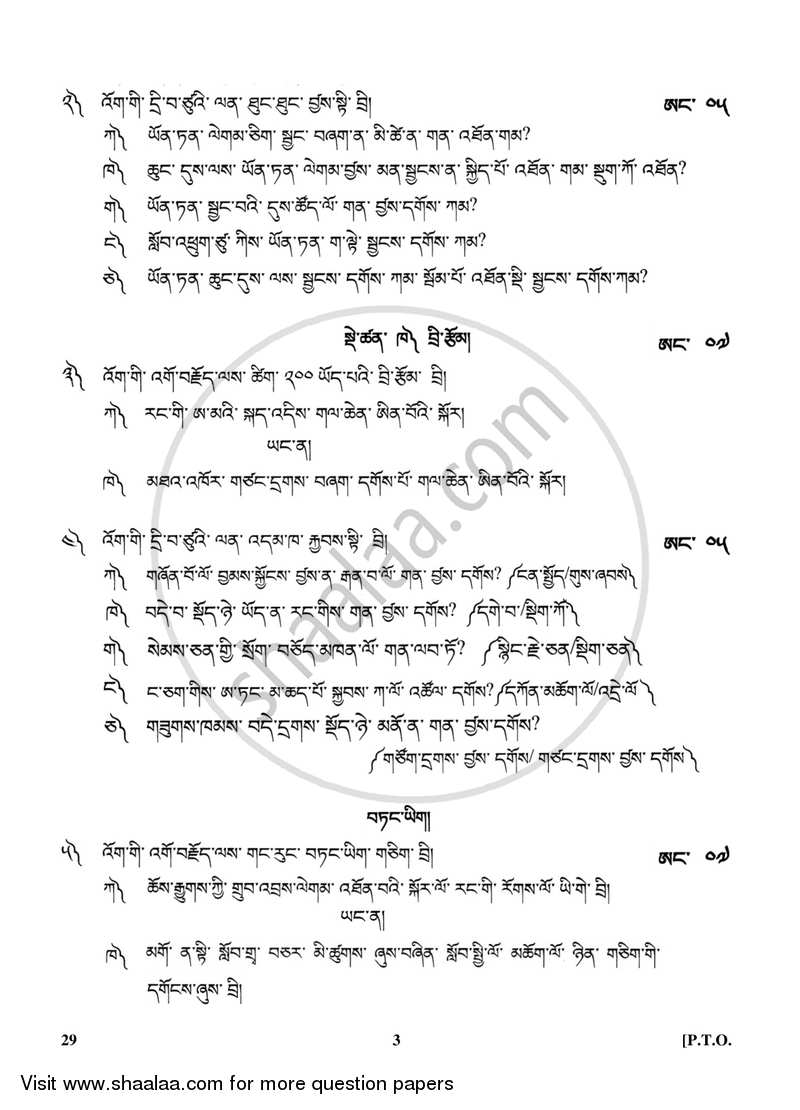 ༢༽ འོག་གི་ དྲི་བ་ཙུའི་ ལན་ ཐུང་ཐུང་ བྱས་སྟི་ བྲི། ཨང་ ༠༥
ཀ༽ ཡོན་ཏན་ ལེགམ་ཅིག་ སྦྱང་ བཞག་ན་ མི་ཚེ་ན་ གན་ འཐོན་གམ?
ཁ༽ ཆུང་ དུས་ལས་ ཡོན་ཏན་ ལེགམ་བྱས་ མན་སྦྱངས་ན་ སྐྱིད་པོ་ འཐོན་ གམ་ སྡུག་ཀོ་ འཐོན?
ག༽ ཡོན་ཏན་ སྦྱང་བའི་ དུས་ཚོད་ལོ་ གན་ བྱས་དགོས་ ཀམ?
ང༽ སློབ་འཕྲུག་ཙུ་ ཀིས་ ཡོན་ཏན་ ག་ལྟེ་ སྦྱངས་ དགོས་ ཀམ?
ཅེ༽ ཡོན་ཏན་ ཆུང་དུས་ ལས་ སྦྱངས་ དགོས་ ཀམ་ སྦོམ་པོ་ འཐོན་སྡི་ སྦྱངས་ དགོས་ཀམ?
སྡེ་ཚན་ ཁ༽ བྲི་རྩོམ། ཨང་ ༠༧
༣༽ འོག་གི་ འགོ་བརྗོད་ལས་ ཚིག་ ༢༠༠ ཡོད་པའི་ བྲི་རྩོམ་ བྲི།
ཀ༽ རང་གི་ ཨ་མའི་ སྐད་འདིས་ གལ་ཆེན་ ཨིན་བོའི་ སྐོར།
ཡང་ན།
ཁ༽ མཐའ་འཁོར་ གཙང་དྲགས་ བཞག་ དགོས་པོ་ གལ་ཆེན་ ཨིན་བོའི་ སྐོར།
༤༽ འོག་གི་ དྲི་བ་ཙུའི་ ལན་ འདམ་ཁ་ རྒྱབས་སྟི་ བྲི། ཨང་ ༠༥
ཀ༽ གཞོན་བོ་ལོ་ བྱམས་སྐྱོངས་ བྱས་ན་ རྒན་བ་ལོ་ གན་ བྱས་ དགོས? ༼ངན་སྤྱོད/གུས་ཞབས༽
ཁ༽ བདེ་བ་ སྡོད་ཉེ་ ཡོད་ན་ རང་གིས་ གན་ བྱས་ དགོས? ༼དགེ་བ/སྡིག་ཀོ༽
ག༽ སེམས་ཅན་གྱི་ སྲོག་ བཅོད་མཁན་ལོ་ གན་ལབ་ཏོ? ༼སྙིང་རྗེ་ཅན/སྡིག་ཅན༽
ང༽ ང་ཅག་གིས་ ཨ་ཏང་ མ་ཆད་པོ་ སྐྱབས་ ཀ་ལོ་ འཚོལ་ དགོས? ༼དཀོན་མཆོག་ལོ/འདྲེ་ལོ༽
ཅེ༽ གཟུགས་ཁམས་ བདེ་དྲགས་ སྡོད་ཉེ་ མནོ་ན་ གན་ བྱས་དགོས?
༼གཙོག་དྲགས་ བྱས་ དགོས/ གཙང་དྲགས་ བྱས་ དགོས༽
བཏང་ཡིག།
༥༽ འོག་གི་ འགོ་བརྗོད་ལས་ གང་རུང་ བཏང་ཡིག་ གཅིག་ བྲི། ཨང་ ༠༧
ཀ༽ ཆོས་རྒྱུགས་ཀྱི་ གྲུབ་འབྲས་ལེགམ་ འཐོན་བའི་ སྐོར་ལོ་ རང་གི་ རོགས་ལོ་ ཡི་གེ་ བྲི།
ཡང་ན།
ཁ༽ མགོ་ ན་སྟི་ སློབ་གྲྭ་ བཅར་ མི་ཚུགས་ ཞུས་བཞིན་ སློབ་སྤྱི་ལོ་ མཆོག་ལོ་ ཉིན་ གཅིག་གི་
དགོངས་ཞུས་ བྲི།
29 3 [P.T.O.
Visit www.shaalaa.com for more question papers
shaalaa.com